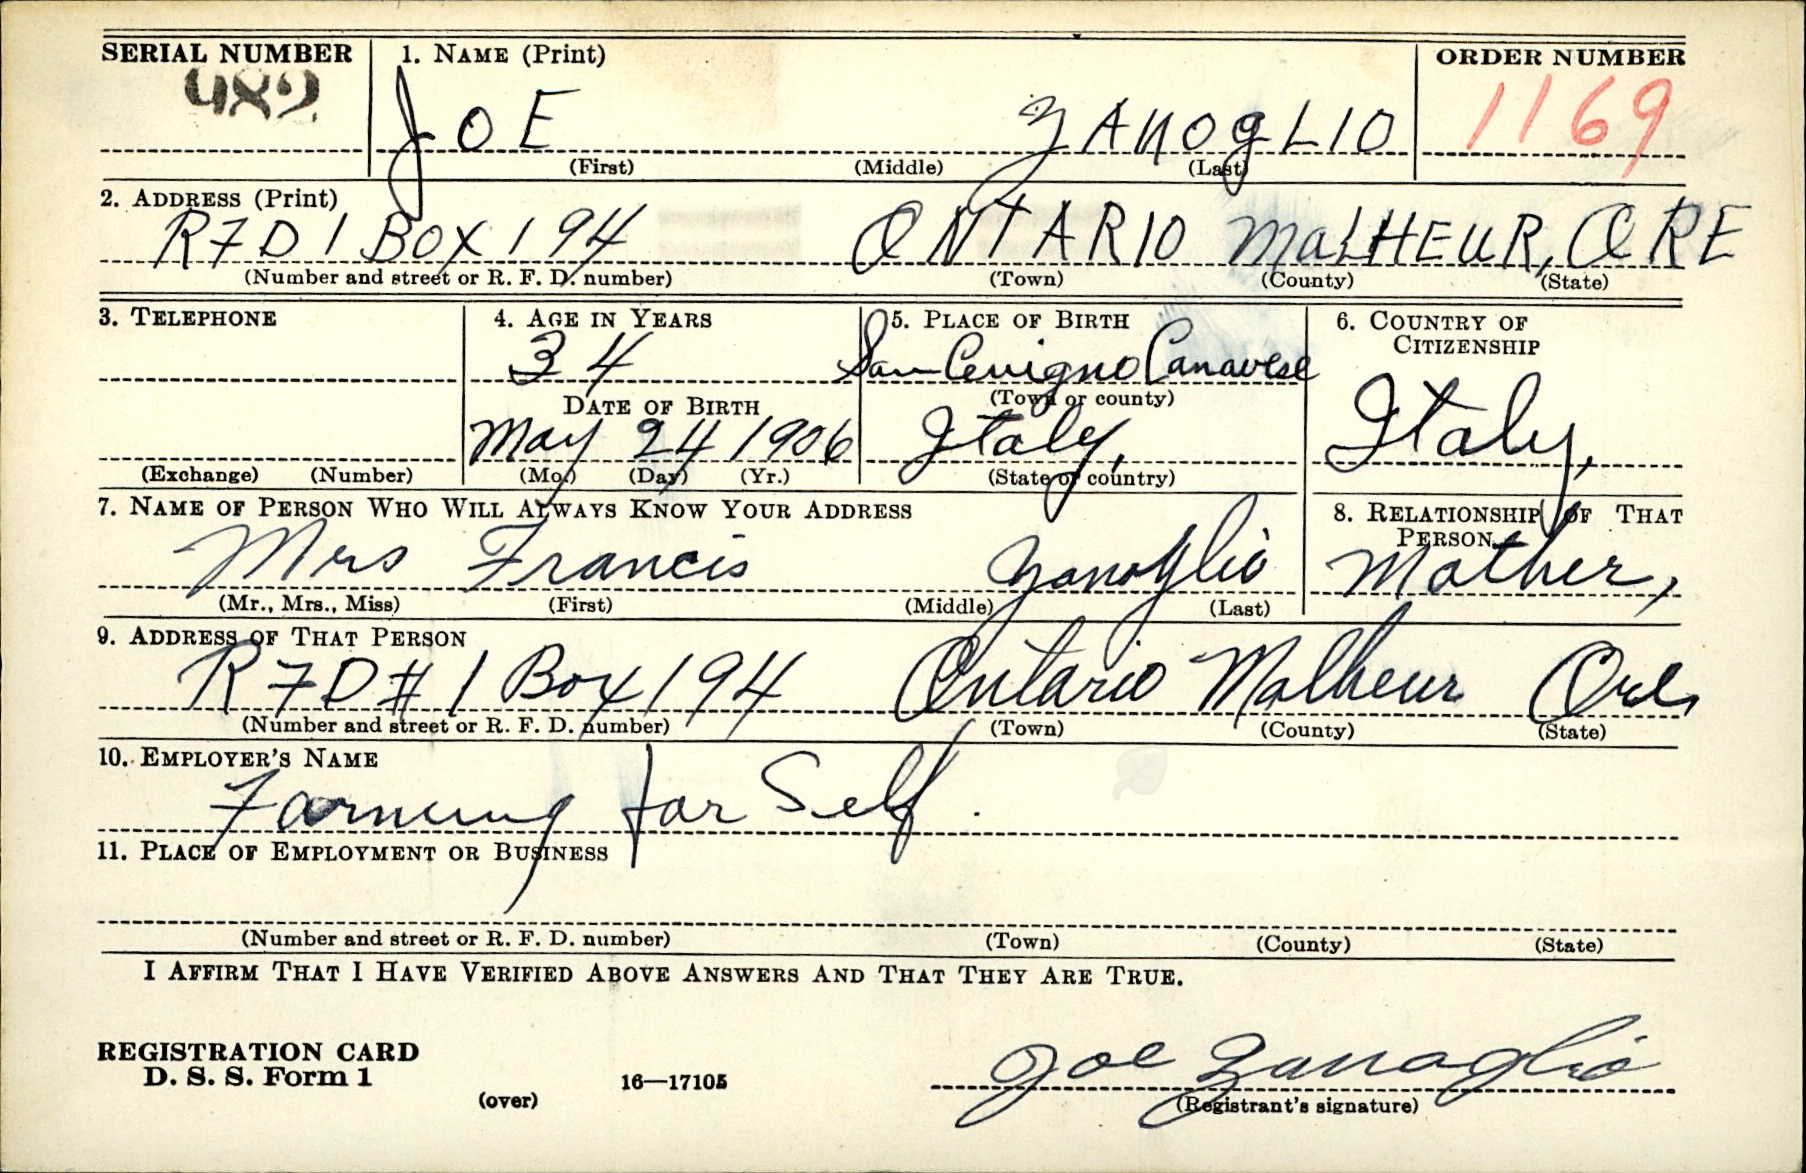 SERIAL NUMBER 1. NAME (Print) ORDER NUMBER
982 JOE ZANOGLIO 1169
(First) (Middle) (Last)
2. ADDRESS (Print)
RFD 1 BOX 194 ONTARIO MALHEUR, ORE
(Number and street or R. F. D. number) (Town) (County) (State)
3. TELEPHONE 4. AGE IN YEARS 5. PLACE OF BIRTH 6. COUNTRY OF CITIZENSHIP
34 San Cenigno Canavese
(Town or county)
DATE OF BIRTH
May 24 1906 Italy, Italy,
(Exchange) (Number) (Mo.) (Day) (Yr.) (State or country)
7. NAME OF PERSON WHO WILL ALWAYS KNOW YOUR ADDRESS 8. RELATIONSHIP OF THAT PERSON
Mrs Francis Zanoglio Mother,
(Mr., Mrs., Miss) (First) (Middle) (Last)
9. ADDRESS OF THAT PERSON
RFD # 1 Box 194 Ontario Malheur Ore,
(Number and street or R. F. D. number) (Town) (County) (State)
10. EMPLOYER'S NAME
Farming for Self.
11. PLACE OF EMPLOYMENT OR BUSINESS
(Number and street or R. F. D. number) (Town) (County) (State)
I AFFIRM THAT I HAVE VERIFIED ABOVE ANSWERS AND THAT THEY ARE TRUE.
REGISTRATION CARD
D. S. S. Form 1 16—17105 Joe Zanoglio
(over) (Registrant's signature)